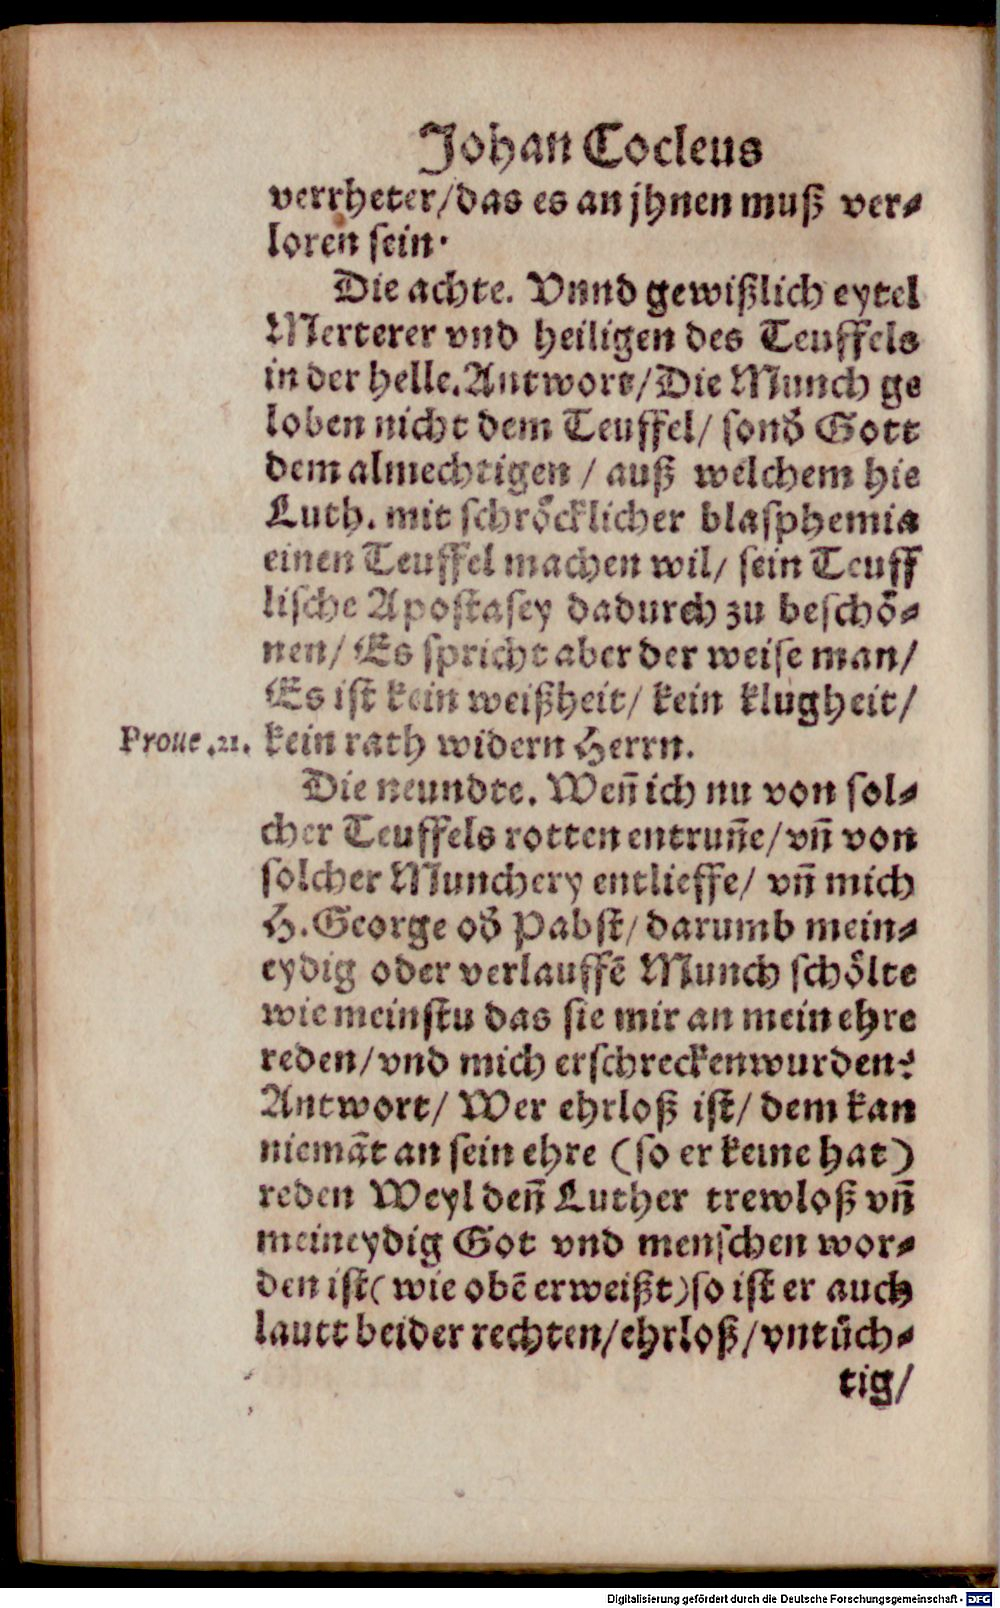 Johan Cocleus
verrheter/das es an jhnen muß ver⸗
loren sein.
Die achte. Vnnd gewißlich eytel
Merterer vnd heiligen des Teuffels
in der helle. Antwort/Die Munch ge
loben nicht dem Teuffel/ sond̕ Gott
dem almechtigen / auß welchem hie
Luth. mit schroͤcklicher blasphemia
einen Teuffel machen wil/ sein Teuff
lische Apostasey dadurch zu beschoͤ⸗
nen/ Es spricht aber der weise man/
Es ist kein weißheit/ kein klugheit/
Proue .21. kein rath widern Herrn.
Die neundte. Wen̄ ich nu von sol⸗
cher Teuffels rotten entrun̄e/ vn̄ von
solcher Munchery entlieffe/ vn̄ mich
H. George od̕ Pabst/ darumb mein⸗
eydig oder verlauffē Munch schoͤlte
wie meinstu das sie mir an mein ehre
reden/vnd mich erschrecken wurden?
Antwort/ Wer ehrloß ist/ dem kan
niemāt an sein ehre (so er keine hat)
reden Weyl den̄ Luther trewloß vn̄
meineydig Got vnd menschen wor⸗
den ist( wie obē erweißt)so ist er auch
lautt beider rechten/ehrloß/vntuͤch⸗
tig/
Digitalisierung gefördert durch die Deutsche Forschungsgemeinschaft - DFG